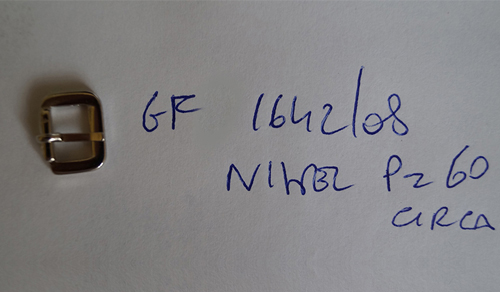 GF 1642/08
NIWEL Pz 60
CIRCA